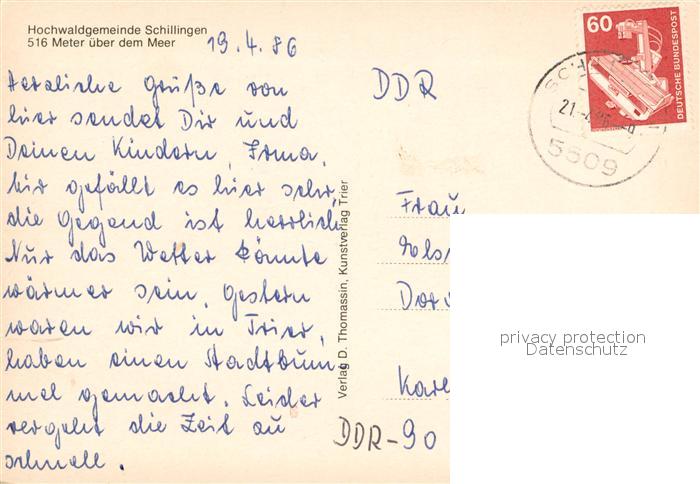 Hochwaldgemeinde Schillingen
516 Meter über dem Meer
19.4.86
Herzliche Grüße von
hier sendet Dir und
Deinen Kindern, Irma,
hir gefällt es hier sehr,
die Gegend ist herrlich
Nur das Wetter könnte
wärmer sein. Gestern
waren wir in Trier,
haben einen Stadtbum
mel gemacht. Leider
vergeht die Zeit zu
schnell.
Verlag D. Thomassin, Kunstverlag Trier
DDR
60
DEUTSCHE BUNDESPOST
5509
Frau
Dor
Karl
DDR-90
privacy protection
Datenschutz